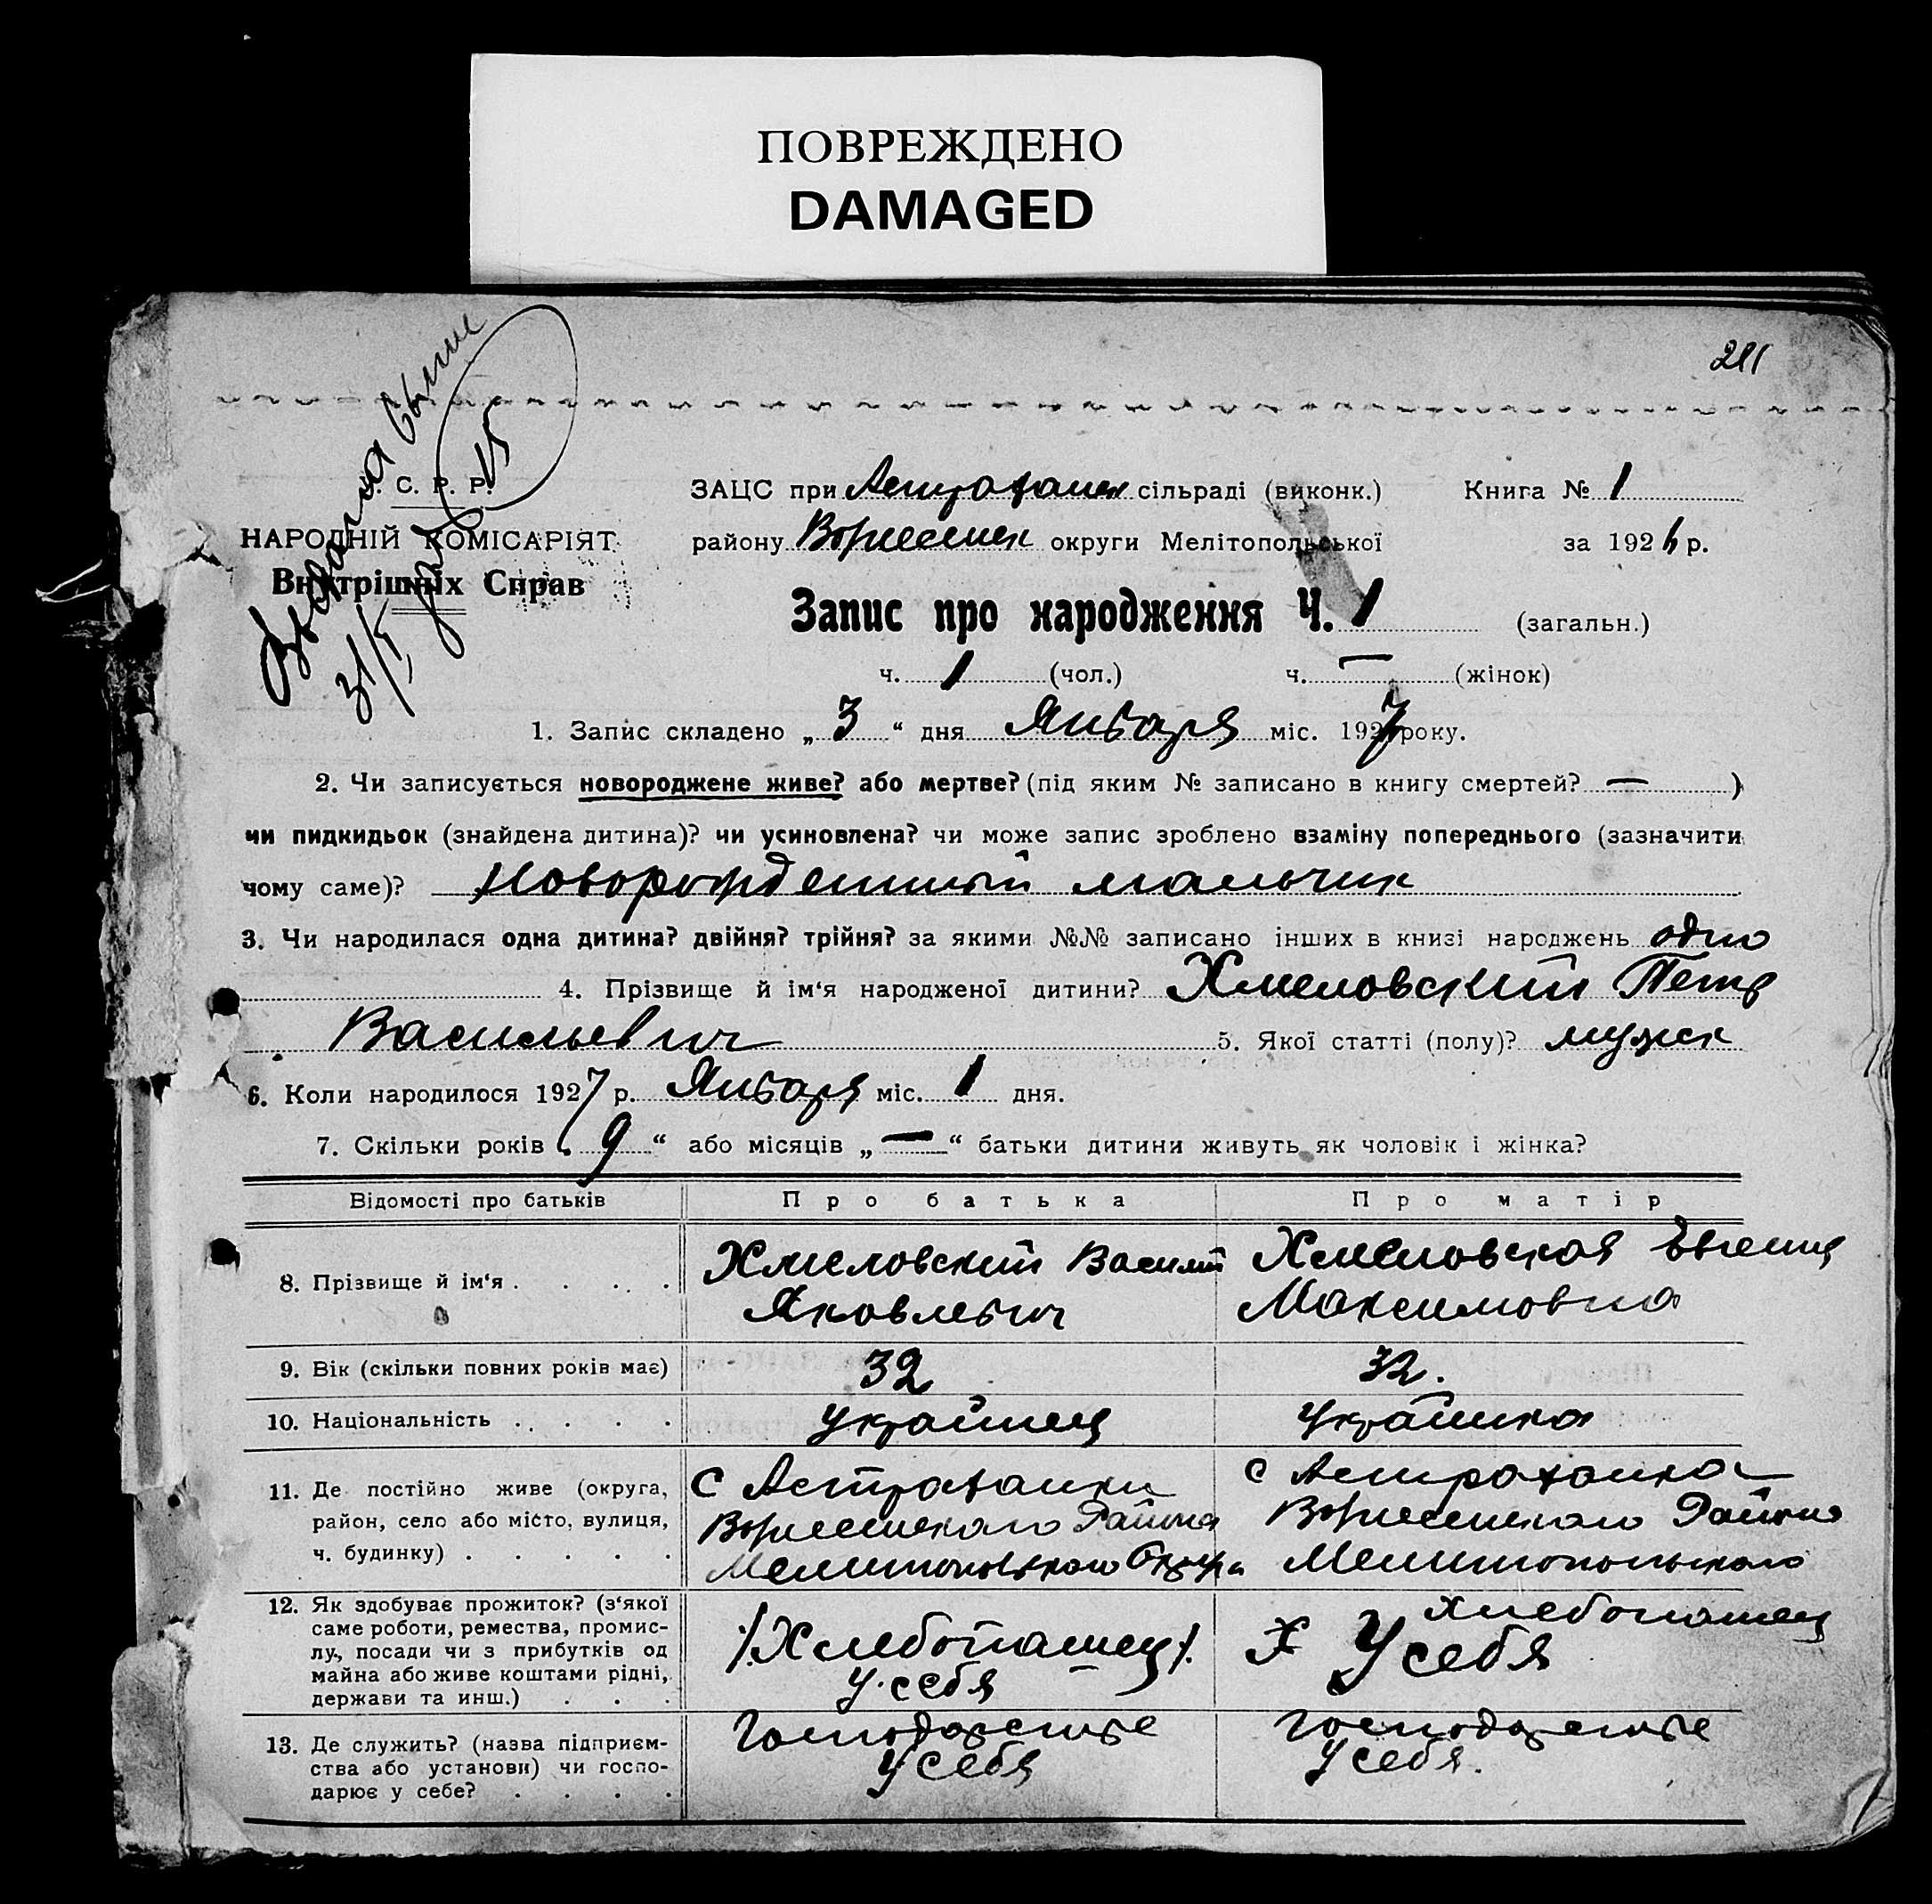 ПОВРЕЖДЕНО
DAMAGED
С. Р. Р.
НАРОДНІЙ КОМІСАРІЯТ
Внутрішніх Справ
31/I
ЗАЦС при Астрахан сільраді (виконк.) Книга № 1
району округи Мелітопольської за 1926 р.
Запис про народження Ч. 1 (загальн.)
ч. 1 (чол.) ч. — (жінок)
1. Запис складено „ 3 “ дня Января міс. 1927 року.
2. Чи записується новороджене живе? або мертве? (під яким № записано в книгу смертей? — )
чи пидкидьок (знайдена дитина)? чи усиновлена? чи може запис зроблено взаміну попереднього (зазначити
чому саме)? Новорожденный мальчик
3. Чи народилася одна дитина? двійня? трійня? за якими №№ записано інших в книзі народжень одно
4. Прізвище й ім‘я народженої дитини? Хмеловский Петр
Васильевич 5. Якої статті (полу)? мужск
6. Коли народилося 1927 р. Января міс. 1 дня.
7. Скільки років „ 9 “ або місяців „ — “ батьки дитини живуть як чоловік і жінка?
Відомості про батьків Про батька Про матір
8. Прізвище й ім‘я . . . . Хмеловский Василий Яковлевич Хмеловская Евгения Максимовна
9. Вік (скільки повних років має) 32 32.
10. Національність . . . . Украйнец Украйнка
11. Де постійно живе (округа, с Астраханки с Астраханка
район, село або місто, вулиця, Района Района
ч. будинку) . . . . . Мелитопольского Округа Мелитопольского
12. Як здобуває прожиток? (з‘якої хлебопашец
саме роботи, ремества, промис- Хлебопашец У себя
лу, посади чи з прибутків од у себя
майна або живе коштами рідні,
держави та инш.) . . .
13. Де служить? (назва підприєм-
ства або установи) чи госпо- у себя у себя.
дарює у себе? . . . .